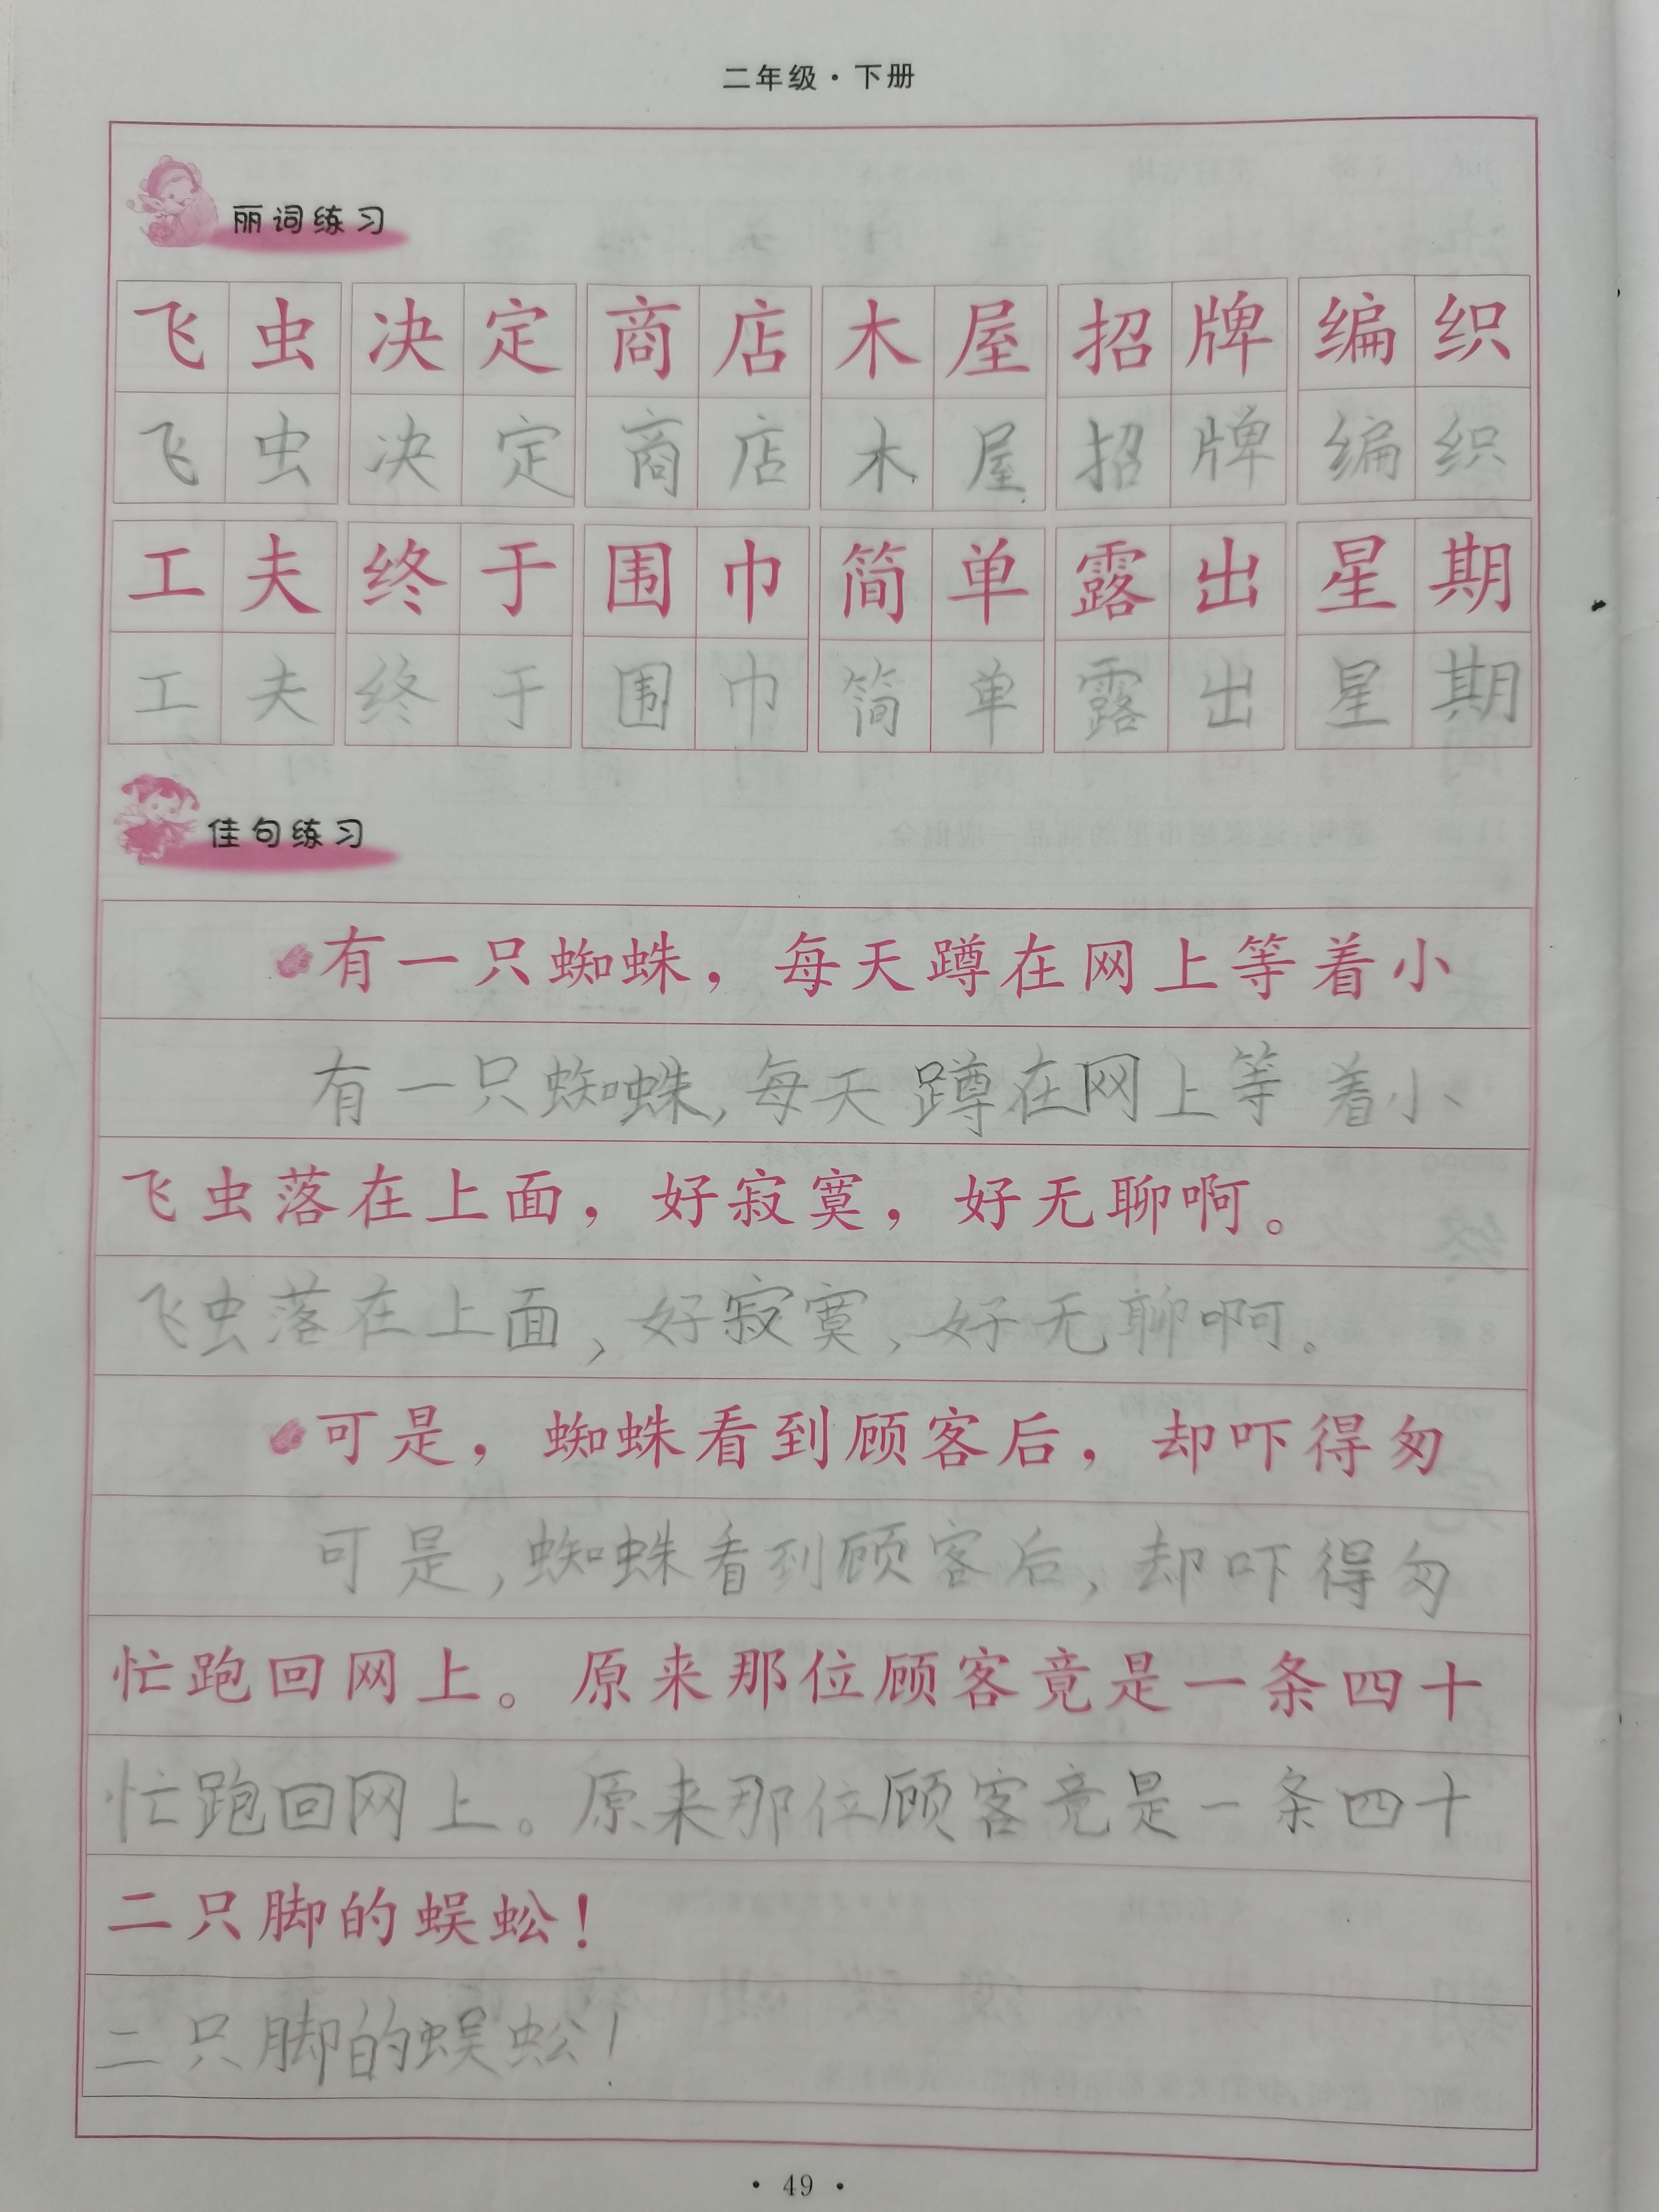 二年级·下册
丽词练习
飞虫 决定 商店 木屋 招牌 编织
飞虫 决定 商店 木屋 招牌 编织
工夫 终于 围巾 简单 露出 星期
工夫 终于 围巾 简单 露出 星期
佳句练习
有一只蜘蛛，每天蹲在网上等着小
有一只蜘蛛，每天蹲在网上等着小
飞虫落在上面，好寂寞，好无聊啊。
飞虫落在上面，好寂寞，好无聊啊。
可是，蜘蛛看到顾客后，却吓得匆
可是，蜘蛛看到顾客后，却吓得匆
忙跑回网上。原来那位顾客竟是一条四十
忙跑回网上。原来那位顾客竟是一条四十
二只脚的蜈蚣！
二只脚的蜈蚣！
·49·